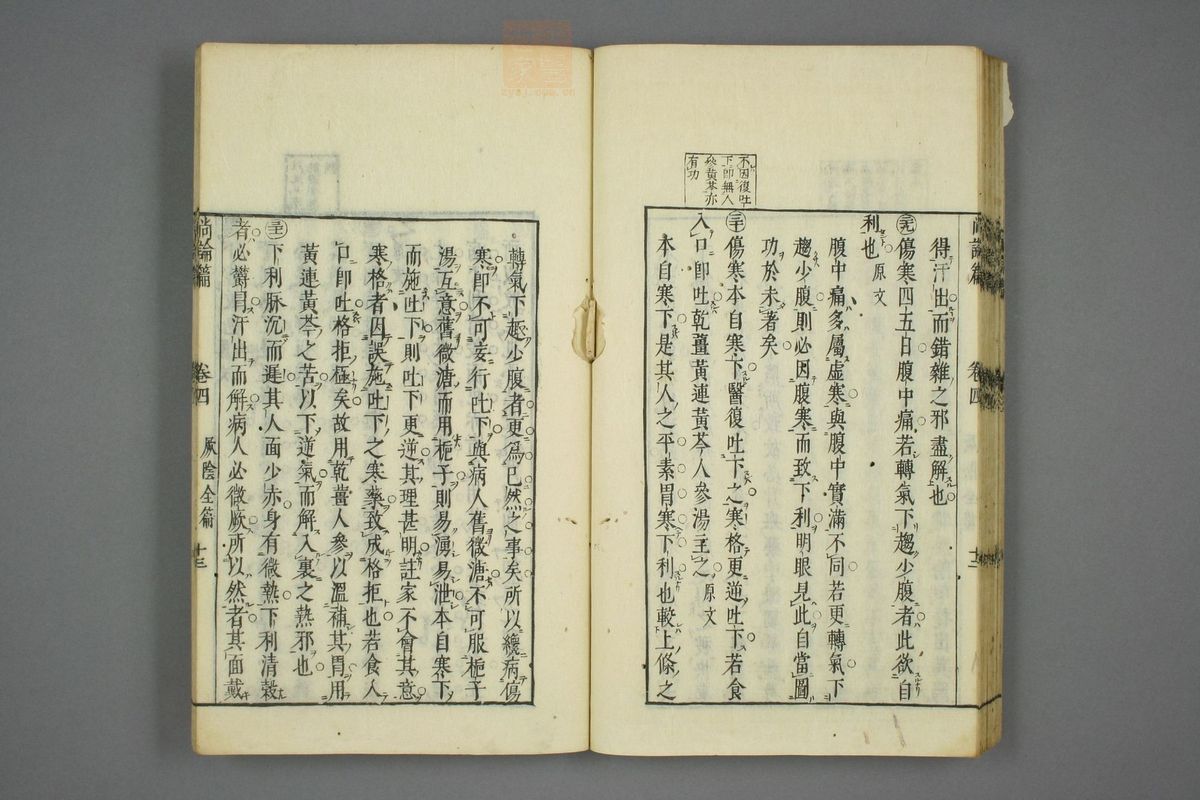 不因復吐
下即無人
參黃芩亦
有功
尚論篇 卷四 十二
得汗出而錯雜之邪盡解也
㊄傷寒四五日腹中痛若轉氣下趨少腹者此欲自
利也 原文
腹中痛多屬虛寒與腹中實滿不同若更轉氣下
趨少腹則必因腹寒而致下利明眼見此自當圖
功於未著矣
傷寒本自寒下醫復吐下之寒格更逆吐下若食
入口即吐乾薑黃連黃芩人參湯主之 原文
本自寒下是其人之平素胃寒下利也較上條之
轉氣下趨少腹者更爲已然之事矣所以纔病傷
寒即不可妄行吐下與病人舊微溏不可服梔子
湯互意舊微溏而用梔子則易湧易泄本自寒下
而施吐下則吐下更逆其理甚明註家不會其意
寒格者因誤施吐下之寒藥致成格拒也若食入
口即吐格拒極矣故用乾薑人參以溫補其胃用
黃連黃芩之苦以下逆氣而解入裏之熱邪也
下利脉沉而遲其人面少赤身有微熱下利清穀
者必欝冐汗出而解病人必微厥所以然者其面戴
尚論篇 卷四 厥陰全篇 十三